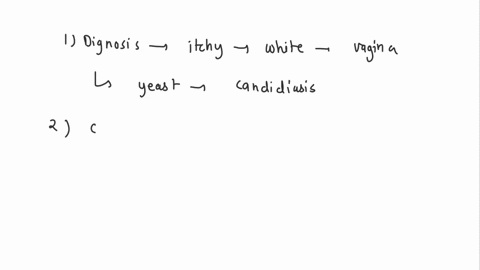 1) Dignosis → itchy → white → vagina
↳ yeast → candidiasis
2) c